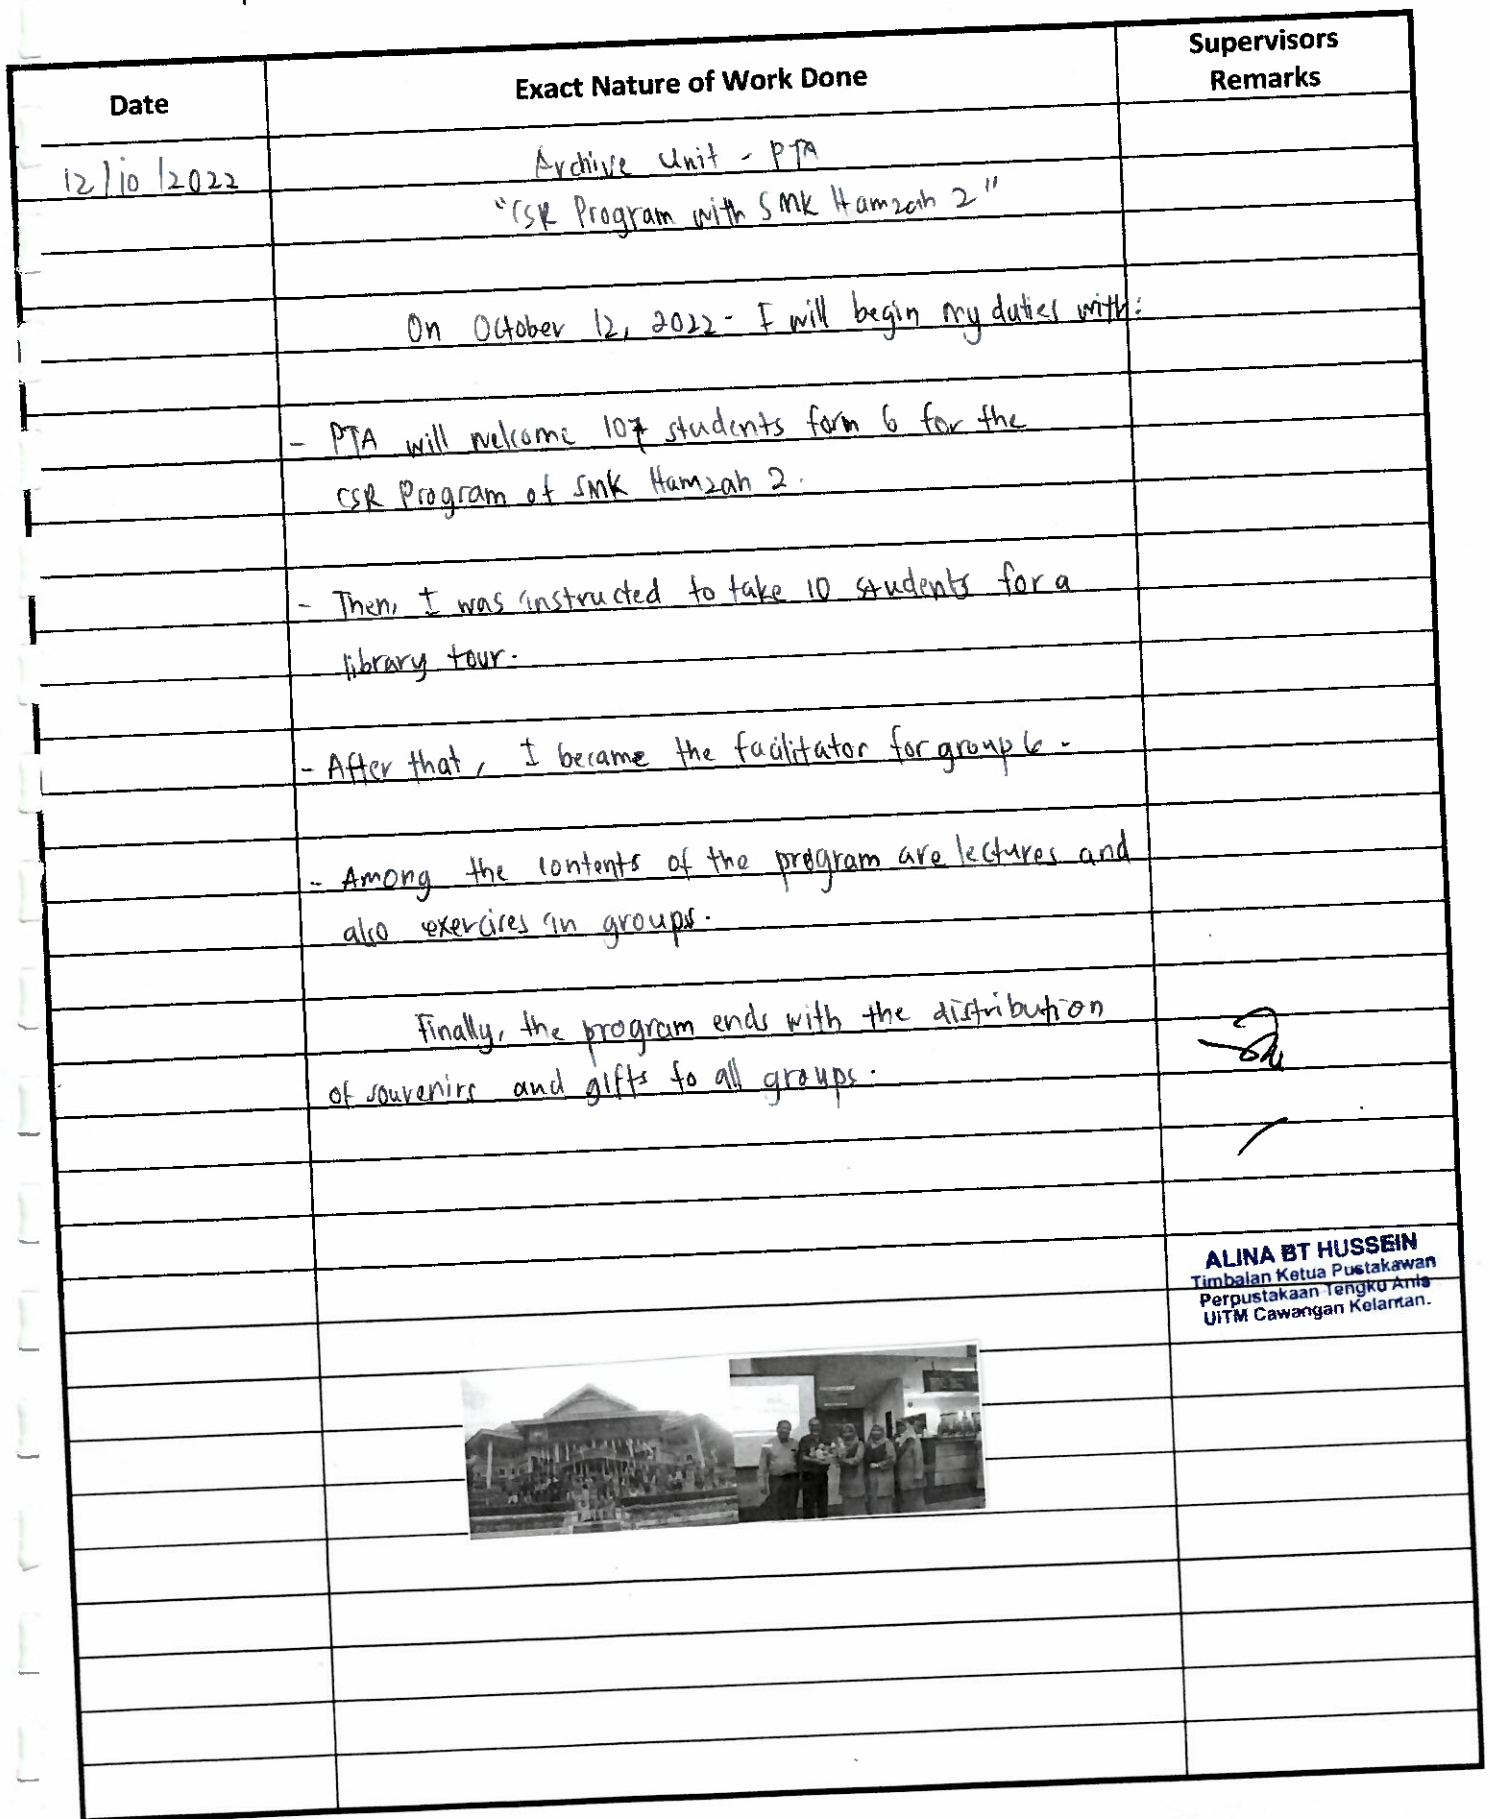 Date
Exact Nature of Work Done
Supervisors
Remarks
12/10/2022
Archive Unit - PTA
"CSR Program with SMK Hamzah 2"
On October 12, 2022 - I will begin my duties with:
- PTA will welcome 107 students form 6 for the
CSR Program of SMK Hamzah 2.
- Then, I was instructed to take 10 students for a
library tour.
- After that, I became the facilitator for group 6.
- Among the contents of the program are lectures and
also exercises in groups.
Finally, the program ends with the distribution
of souvenirs and gifts to all groups.
ALINA BT HUSSEIN
Timbalan Ketua Pustakawan
Perpustakaan Tengku Anis
UiTM Cawangan Kelantan.